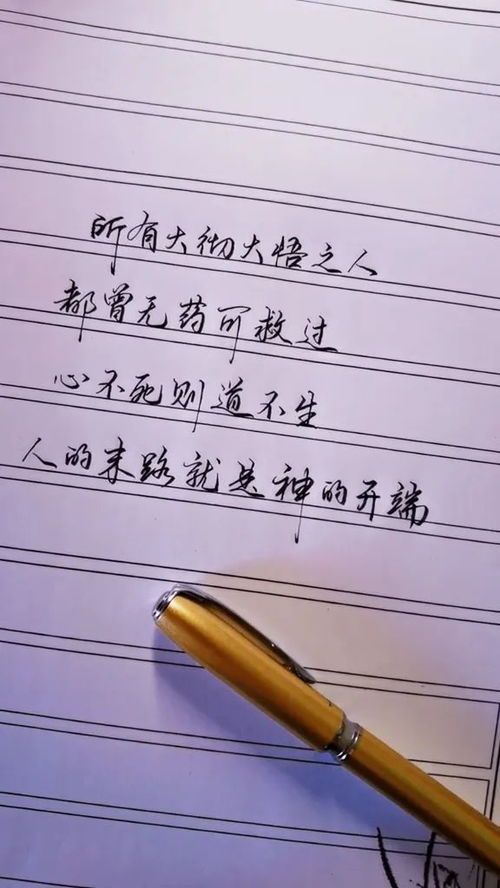 所有大彻大悟之人
都曾无药可救过
心不死则道不生
人的末路就是神的开端